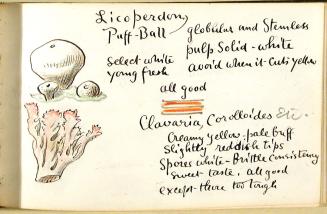 Licoperdons
Puff-Ball
globular and Stemless
pulp Solid - white
Select white
young fresh
avoid when it Cuts yellow
all good
Clavaria, Corolloides Etc.
Creamy yellow - pale buff
Slightly reddish tips
Spores white - Brittle consistency
Sweet taste, all good
except those too tough